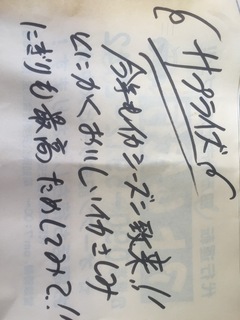 サプライズ
今年もイカシーズン到来!!
とにかくおいしいイカさしみ
にぎりも最高ためしてみて!!